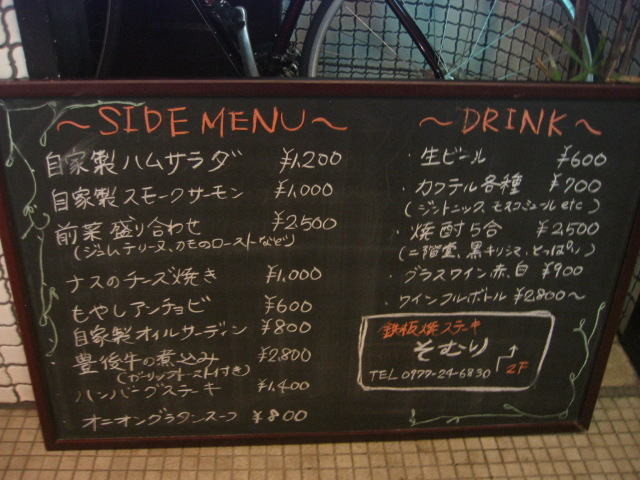 ~SIDE MENU~
自家製ハムサラダ ¥1,200
自家製スモークサーモン ¥1,000
前菜盛り合わせ ¥2,500
(ジャムテリーヌ、カモのローストなど)
ナスのチーズ焼き ¥1,000
もやしアンチョビ ¥600
自家製オイルサーディン ¥800
豊後牛の煮込み ¥2,800
(ガーリックトースト付き)
ハンバーグステーキ ¥1,400
オニオングラタンスープ ¥800
~DRINK~
・生ビール ¥600
・カクテル各種 ¥700
(ジントニック、モスコミュール etc)
・焼酎5合 ¥2,500
(二階堂、黒キリシマ、とっぱい)
・グラスワイン赤、白 ¥900
・ワインフルボトル ¥2,800~
鉄板焼ステーキ
そむり
TEL 0977-24-6830 2F